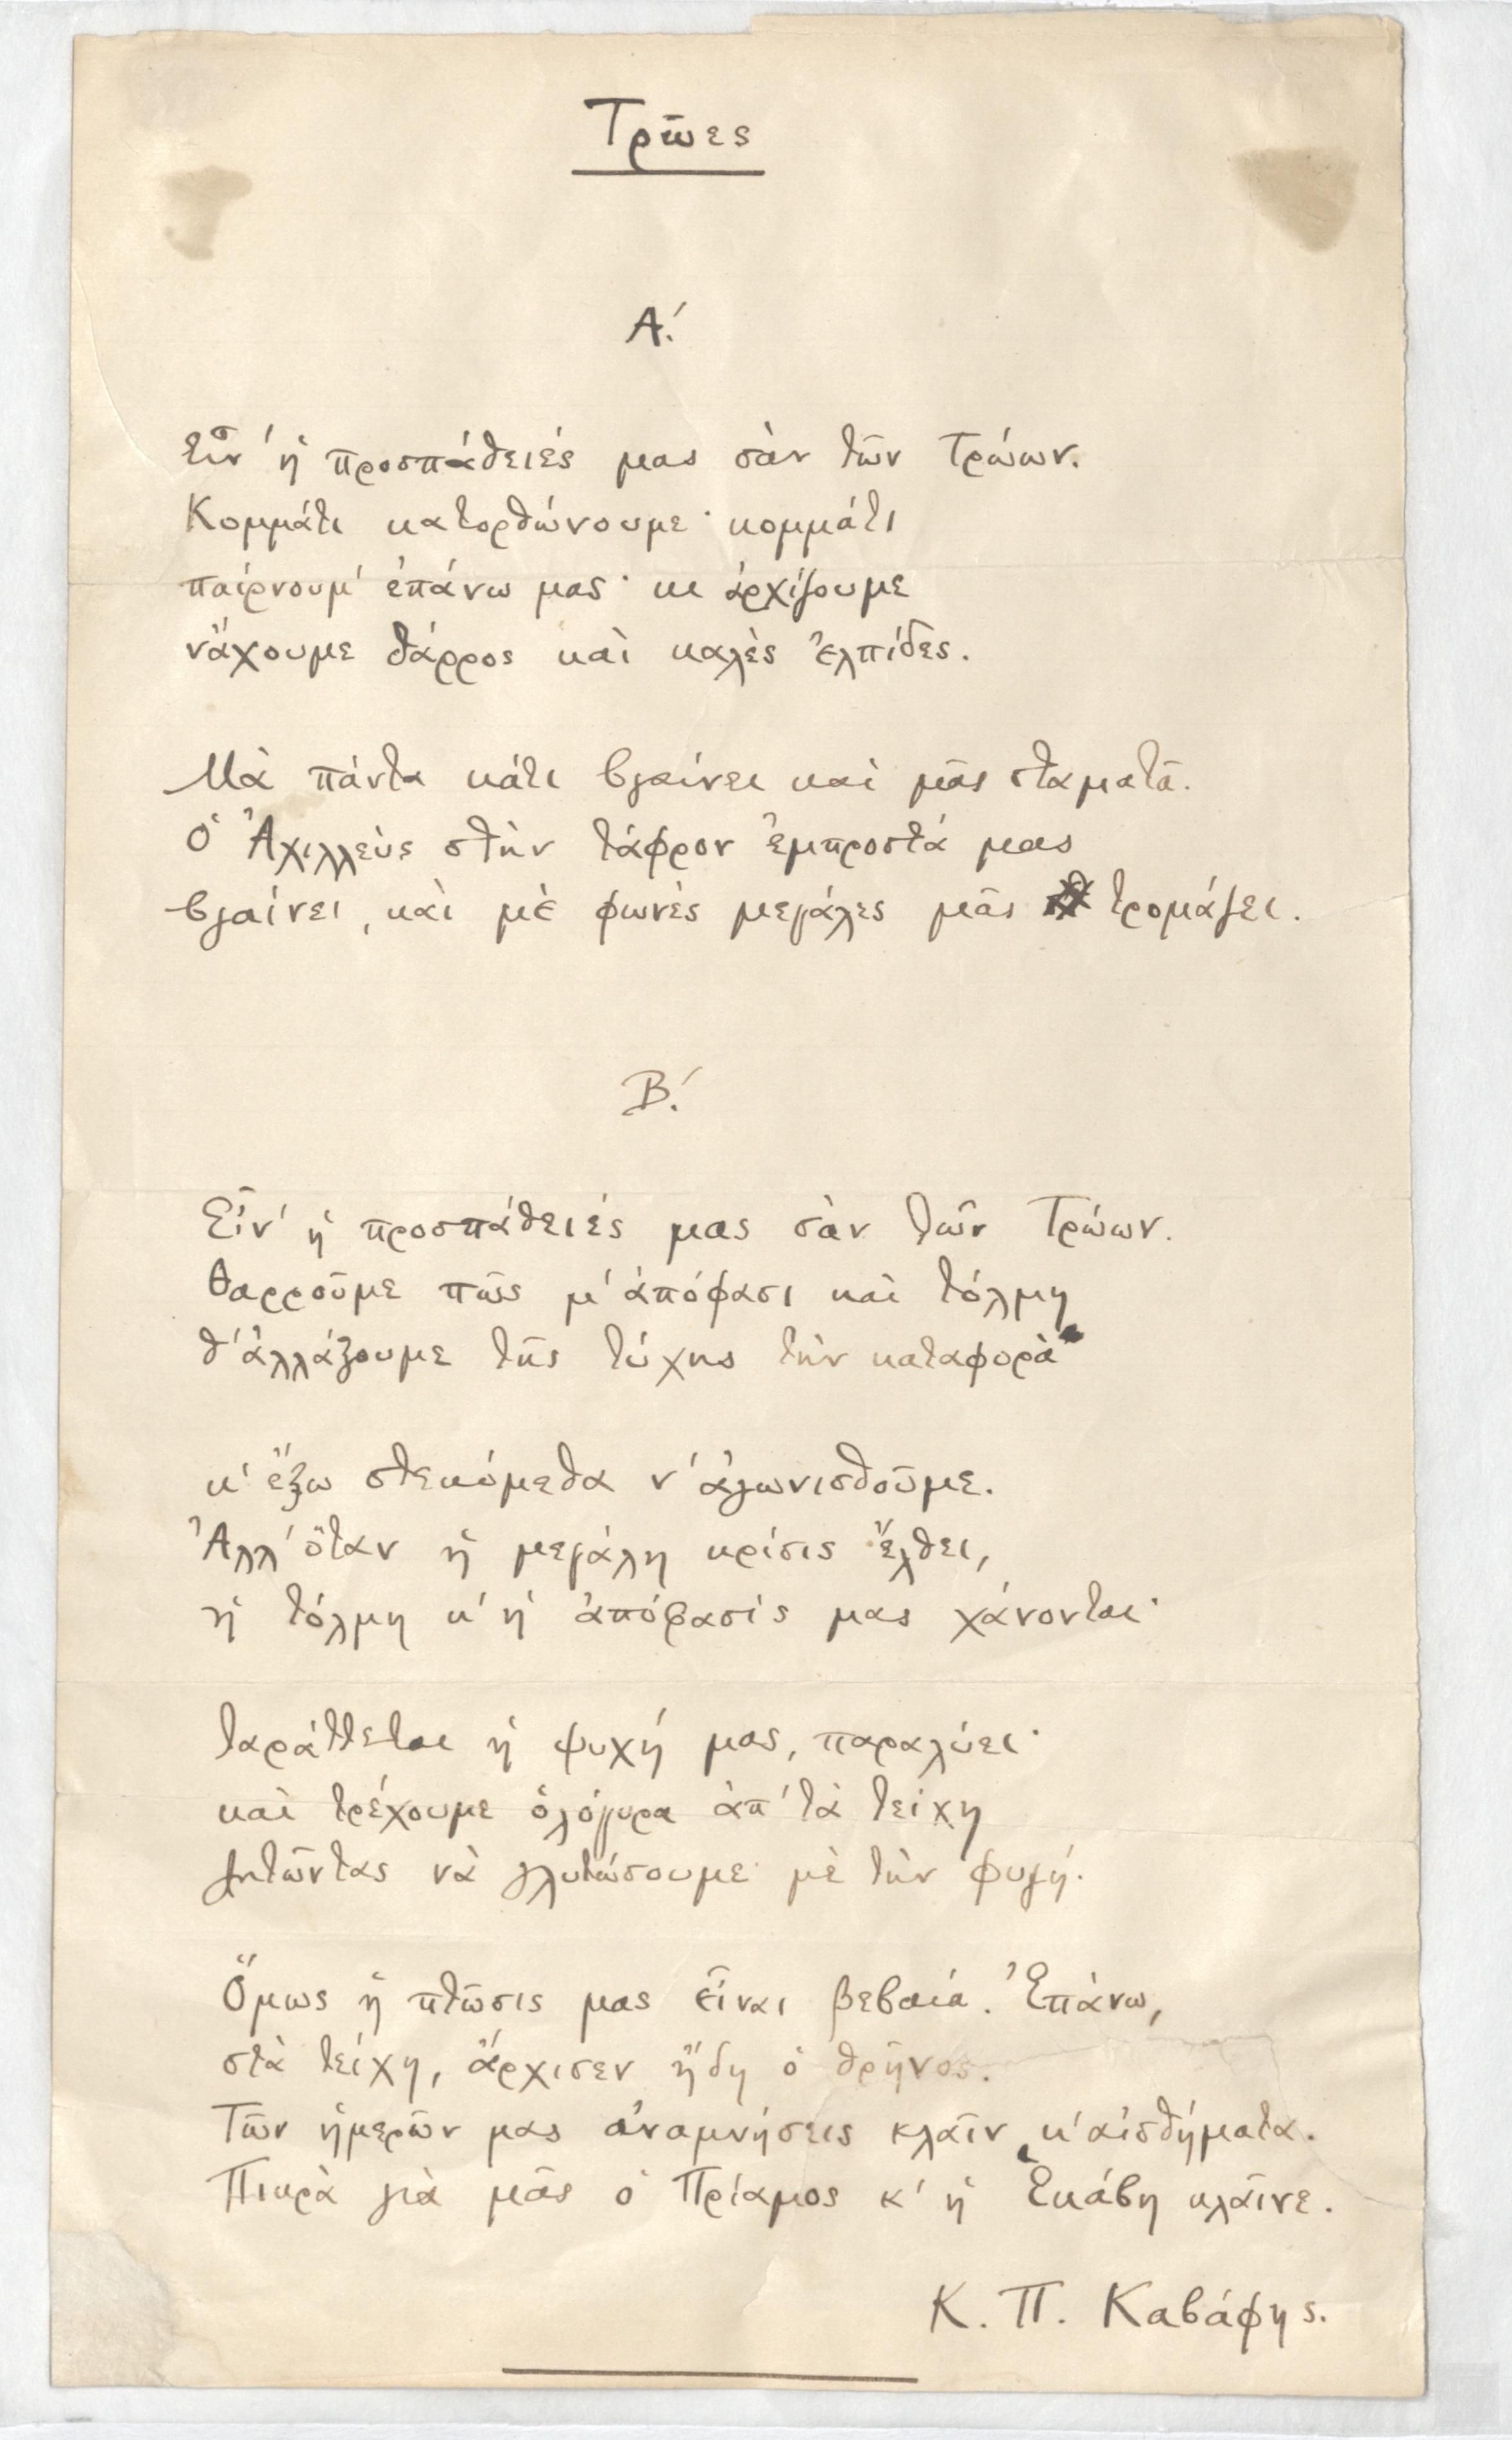 Τρῶες
Α΄.
Εἶν' ἡ προσπάθειές μας σὰν τῶν Τρώων.
Κομμάτι κατορθώνουμε· κομμάτι
παίρνουμ' ἐπάνω μας· κι ἀρχίζουμε
νἄχουμε θάρρος καὶ καλὲς ἐλπίδες.
Μὰ πάντα κάτι βγαίνει καὶ μᾶς σταματᾶ.
Ὁ Ἀχιλλεὺς στὴν τάφρον ἐμπροστά μας
βγαίνει, καὶ μὲ φωνὲς μεγάλες μᾶς τρομάζει.
Β΄.
Εἶν' ἡ προσπάθειές μας σὰν τῶν Τρώων.
Θαρροῦμε πῶς μ' ἀπόφασι καὶ τόλμη
θ' ἀλλάξουμε τῆς τύχης τὴν καταφορὰ
κ' ἔξω στεκόμεθα ν' ἀγωνισθοῦμε.
Ἀλλ' ὅταν ἡ μεγάλη κρίσις ἔλθει,
ἡ τόλμη κ' ἡ ἀπόφασίς μας χάνονται·
ταράττεται ἡ ψυχή μας, παραλύει·
καὶ τρέχουμε ὁλόγυρα ἀπ' τὰ τείχη
ζητῶντας νὰ γλυτώσουμε μὲ τὴν φυγή.
Ὅμως ἡ πτῶσις μας εἶναι βεβαία. Ἐπάνω,
στὰ τείχη, ἄρχισεν ἤδη ὁ θρῆνος.
Τῶν ἡμερῶν μας ἀναμνήσεις κλαῖν κ' αἰσθήματα.
Πικρὰ γιὰ μᾶς ὁ Πρίαμος κ' ἡ Ἑκάβη κλαῖνε.
Κ. Π. Καβάφης.